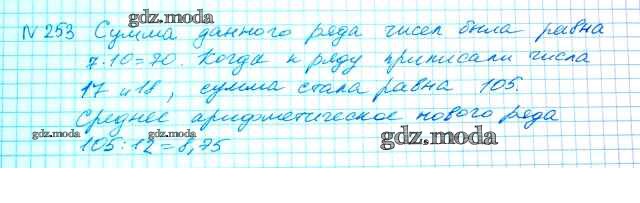 gdz.moda
N 253 Сумма данного ряда чисел была равна
7·10=70. Когда к ряду приписали числа
17 и 18, сумма стала равна 105.
Среднее арифметическое нового ряда
gdz.moda gdz.moda gdz.moda
105:12=8,75
gdz.moda